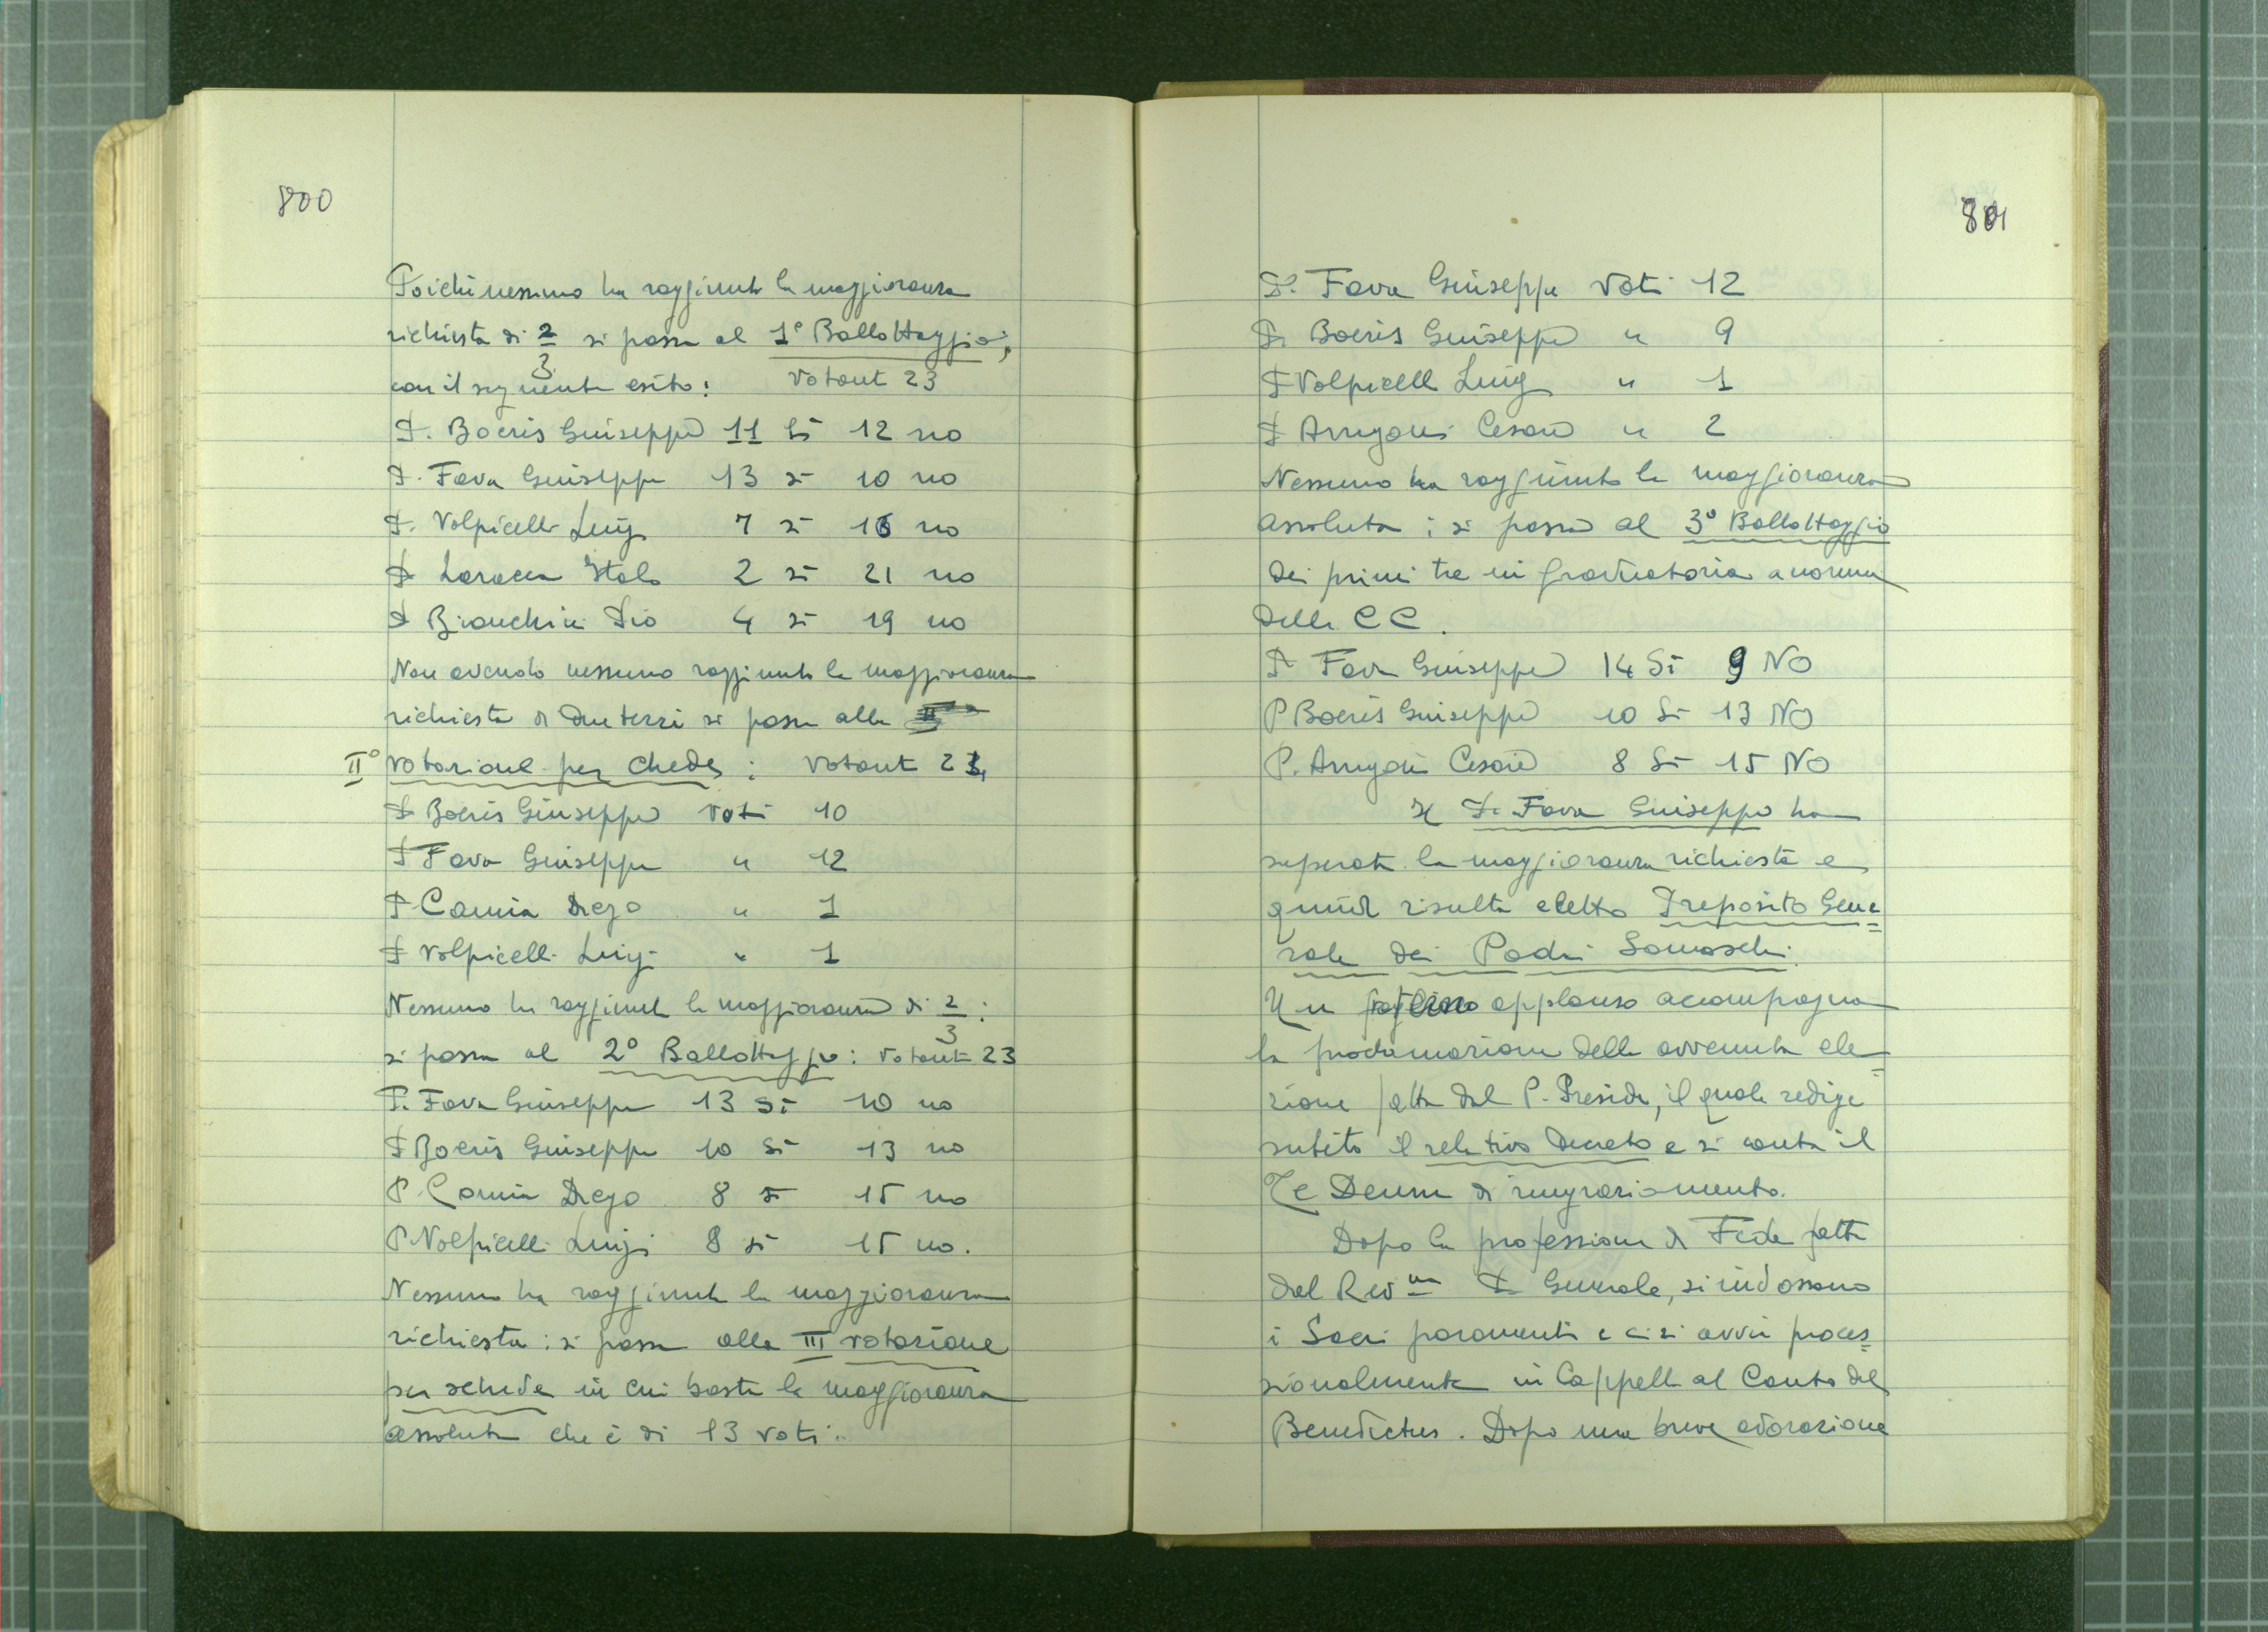 800
Poichè nessuno ha raggiunto la maggioranza
richiesta di 2/3 si passa al 1° Ballottaggio,
con il seguente esito: Votanti 23
P. Boeris Giuseppe 11 si 12 no
P. Fava Giuseppe 13 si 10 no
P. Volpicelli Luigi 7 si 16 no
P. Laracca Italo 2 si 21 no
P. Bianchini Pio 4 si 19 no
Non avendo nessuno raggiunto la maggioranza
richiesta di due terzi si passa alla
II° votazione per schede: Votanti 24
P. Boeris Giuseppe Voti 10
P. Fava Giuseppe " 12
P. Camia Diego " 1
P. Volpicelli Luigi " 1
Nessuno ha raggiunto la maggioranza di 2/3:
si passa al 2° Ballottaggio: Votanti 23
P. Fava Giuseppe 13 si 10 no
P. Boeris Giuseppe 10 si 13 no
P. Camia Diego 8 si 15 no
P. Volpicelli Luigi 8 si 15 no.
Nessuno ha raggiunto la maggioranza
richiesta: si passa alla III votazione
per schede in cui basta la maggioranza
assoluta che è di 13 voti.
801
P. Fava Giuseppe Voti 12
P. Boeris Giuseppe " 9
P. Volpicelli Luigi " 1
P. Arrigoni Cesare " 2
Nessuno ha raggiunto la maggioranza
assoluta; si passa al 3° Ballottaggio
dei primi tre in graduatoria a norma
delle CC.
P. Fava Giuseppe 14 Si 9 NO
P. Boeris Giuseppe 10 Si 13 NO
P. Arrigoni Cesare 8 Si 15 NO
Il P. Fava Giuseppe ha
superato la maggioranza richiesta e
quindi risulta eletto Preposito Gene=
rale dei Padri Somaschi.
Un applauso accompagna
la proclamazione della avvenuta ele=
zione fatta dal P. Preside, il quale redige
subito il relativo Decreto e si canta il
Te Deum di ringraziamento.
Dopo la professione di Fede fatta
dal Rev.mo P. Generale, si indossano
i Sacri paramenti e ci si avvia proces=
sionalmente in Cappella al Canto del
Benedictus. Dopo una breve adorazione